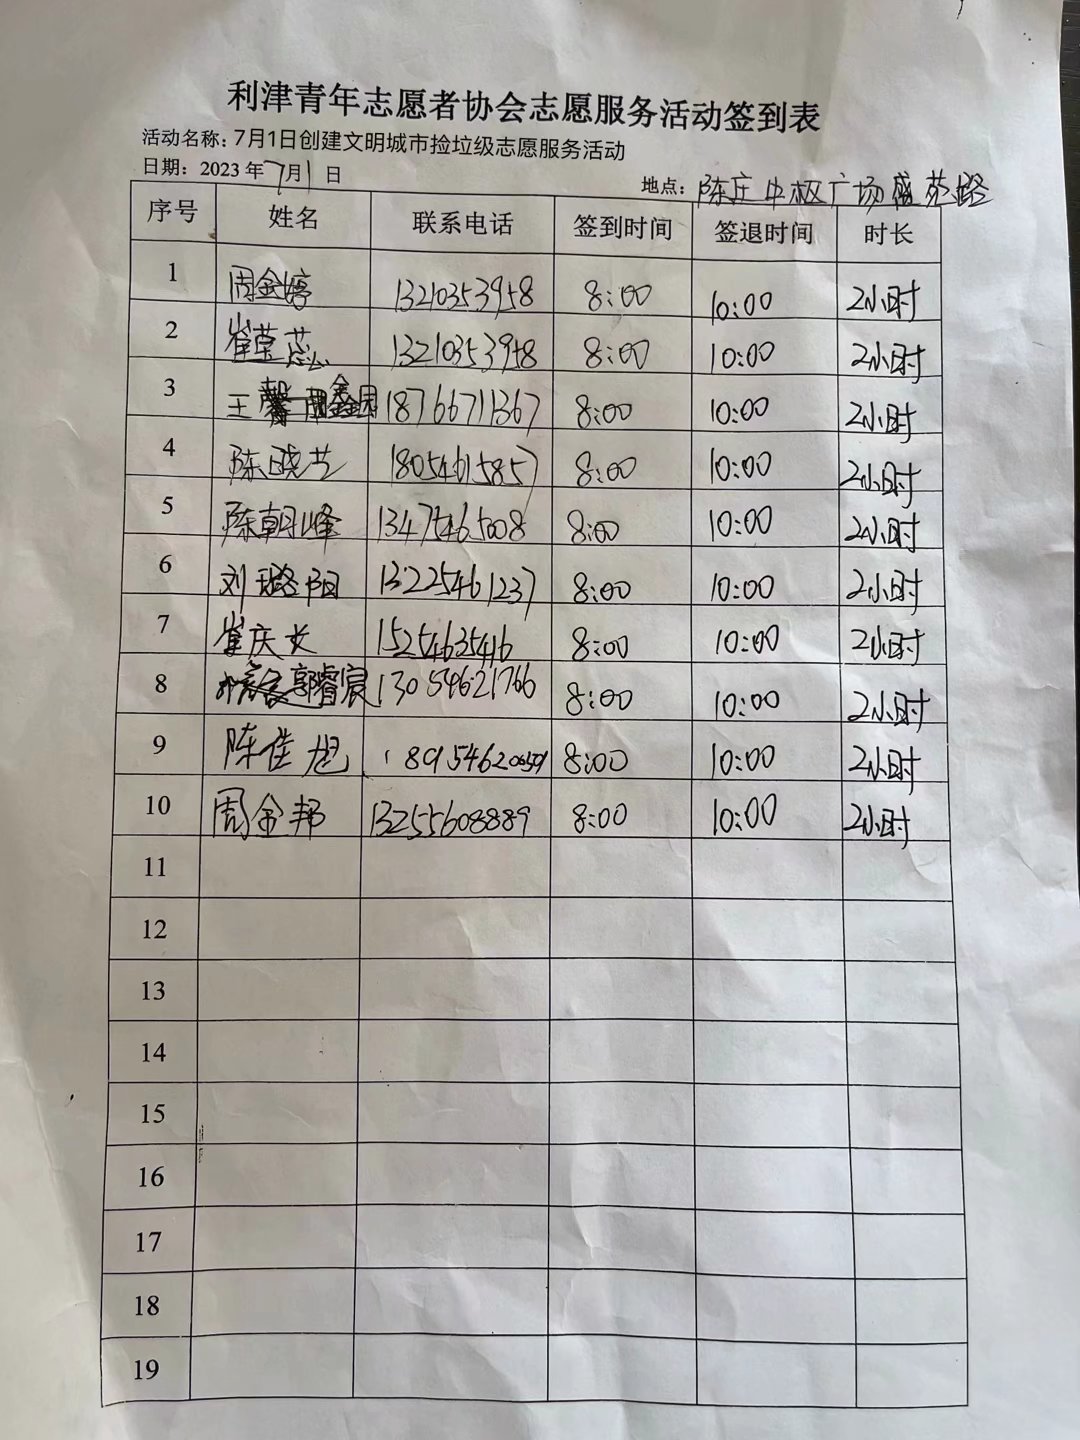 利津青年志愿者协会志愿服务活动签到表
活动名称：7月1日创建文明城市捡垃圾志愿服务活动
日期：2023年7月1日 地点：陈庄中枢广场盛苑路
序号 姓名 联系电话 签到时间 签退时间 时长
1 周金婷 13210353958 8:00 10:00 2小时
2 崔草蕊 13210353958 8:00 10:00 2小时
3 王 18766711367 8:00 10:00 2小时
4 陈晓艺 18054615857 8:00 10:00 2小时
5 陈朝峰 13475465008 8:00 10:00 2小时
6 刘璐阳 13225461237 8:00 10:00 2小时
7 崔庆长 15254635416 8:00 10:00 2小时
8 郭睿宸 13054621766 8:00 10:00 2小时
9 陈佳旭 8:00 10:00 2小时
10 周金邦 13255608889 8:00 10:00 2小时
11
12
13
14
15
16
17
18
19